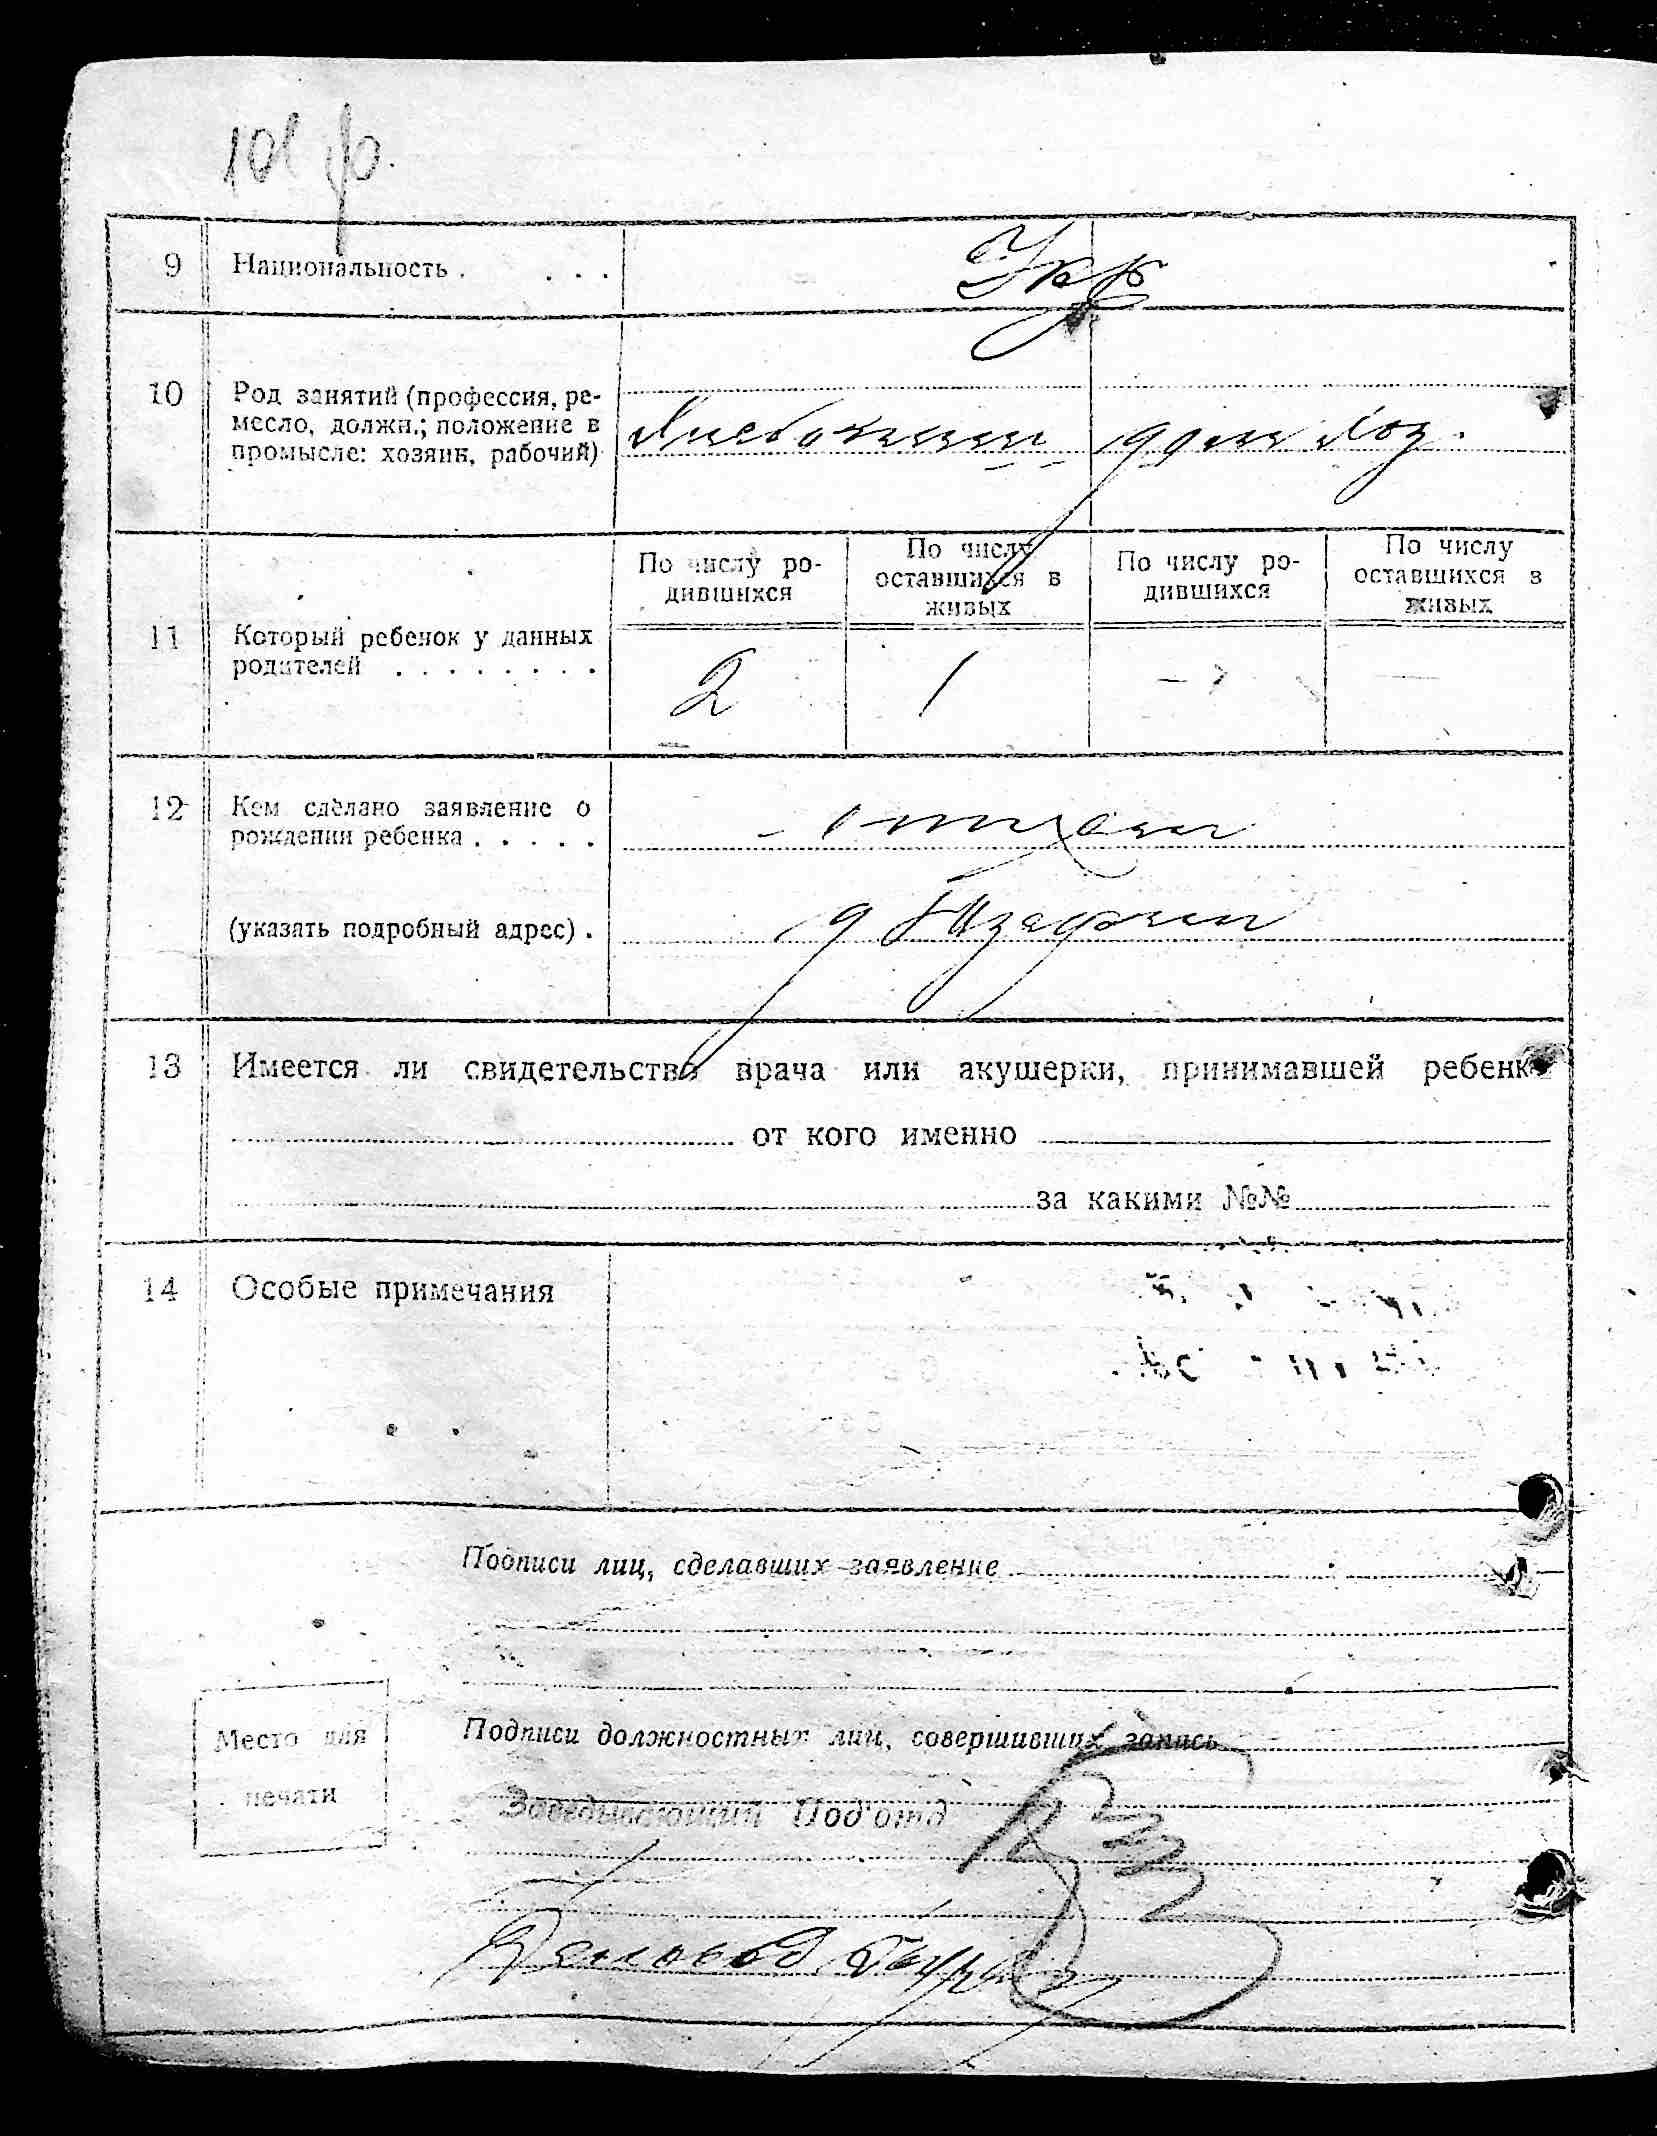 9 Национальность . . . .
Укр
10 Род занятий (профессия, ре-
месло, должн.; положение в
промысле: хозяин, рабочий)
Хлебопашец дом хоз.
По числу ро-
дившихся
По числу
оставшихся в
живых
По числу ро-
дившихся
По числу
оставшихся в
живых
11 Который ребенок у данных
родителей . . . . . . . .
2 1 - -
12 Кем сделано заявление о
рождении ребенка . . . . .
- отцом
(указать подробный адрес) .
13 Имеется ли свидетельство врача или акушерки, принимавшей ребенка
от кого именно
за какими №№
14 Особые примечания
Подписи лиц, сделавших заявление
Место для
печати
Подписи должностных лиц, совершивших запись
Заведывающий Под'отд
Деловод